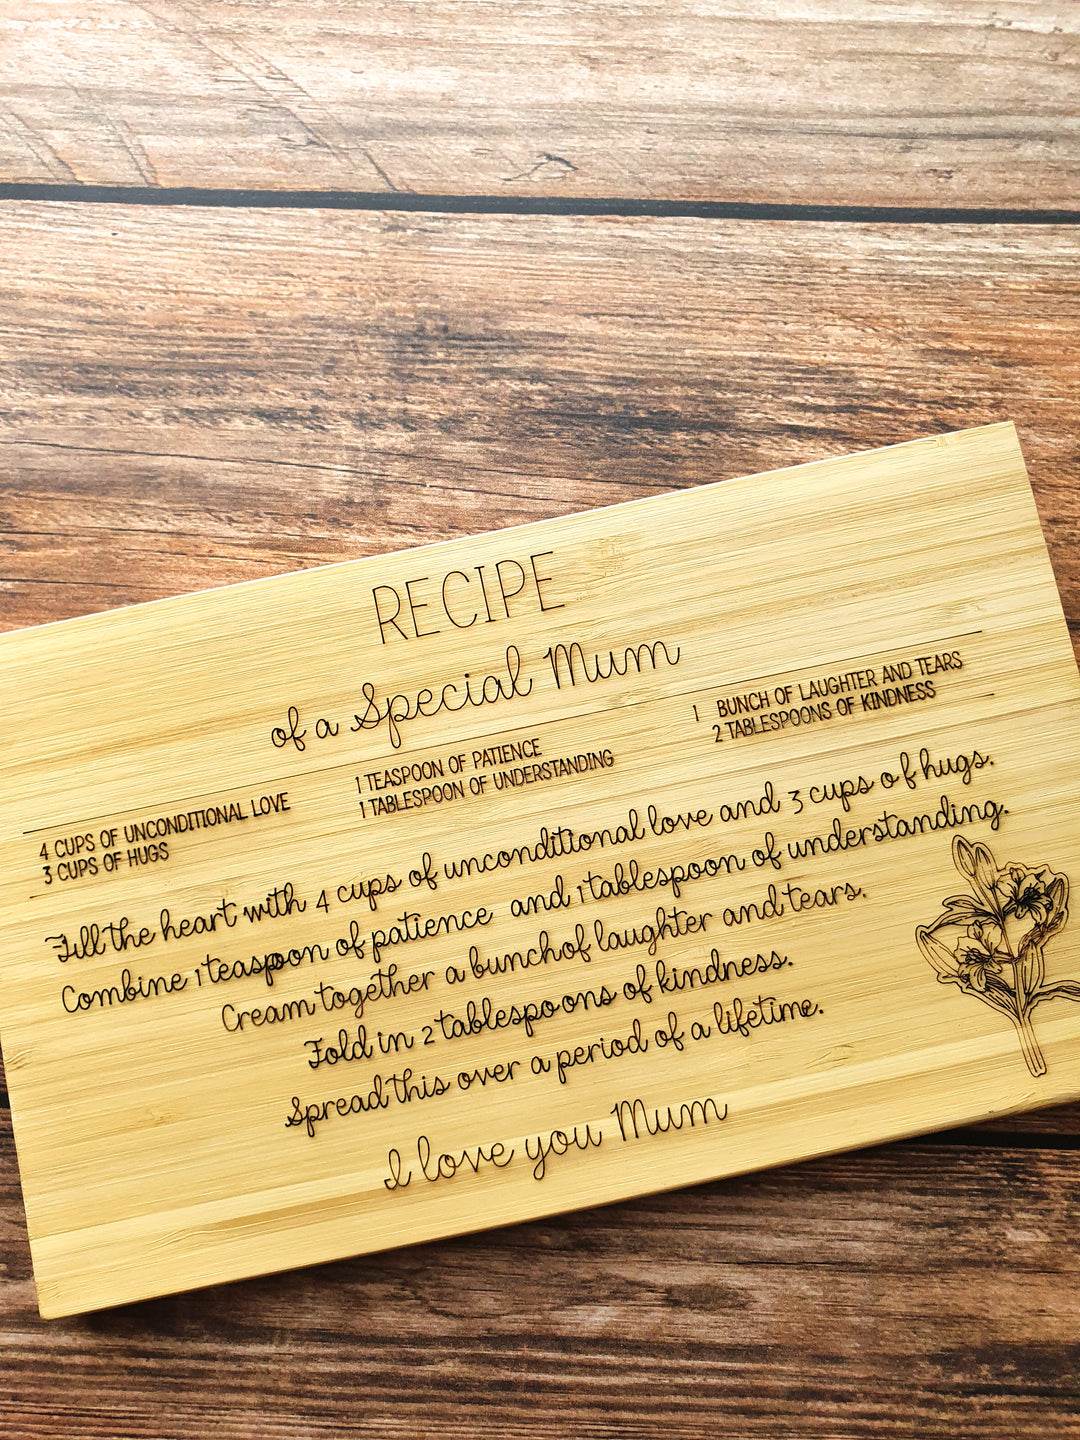 RECIPE
of a Special Mum
4 CUPS OF UNCONDITIONAL LOVE
3 CUPS OF HUGS
1 TEASPOON OF PATIENCE
1 TABLESPOON OF UNDERSTANDING
1 BUNCH OF LAUGHTER AND TEARS
2 TABLESPOONS OF KINDNESS
Fill the heart with 4 cups of unconditional love and 3 cups of hugs.
Combine 1 teaspoon of patience and 1 tablespoon of understanding.
Cream together a bunch of laughter and tears.
Fold in 2 tablespoons of kindness.
Spread this over a period of a lifetime.
I love you Mum